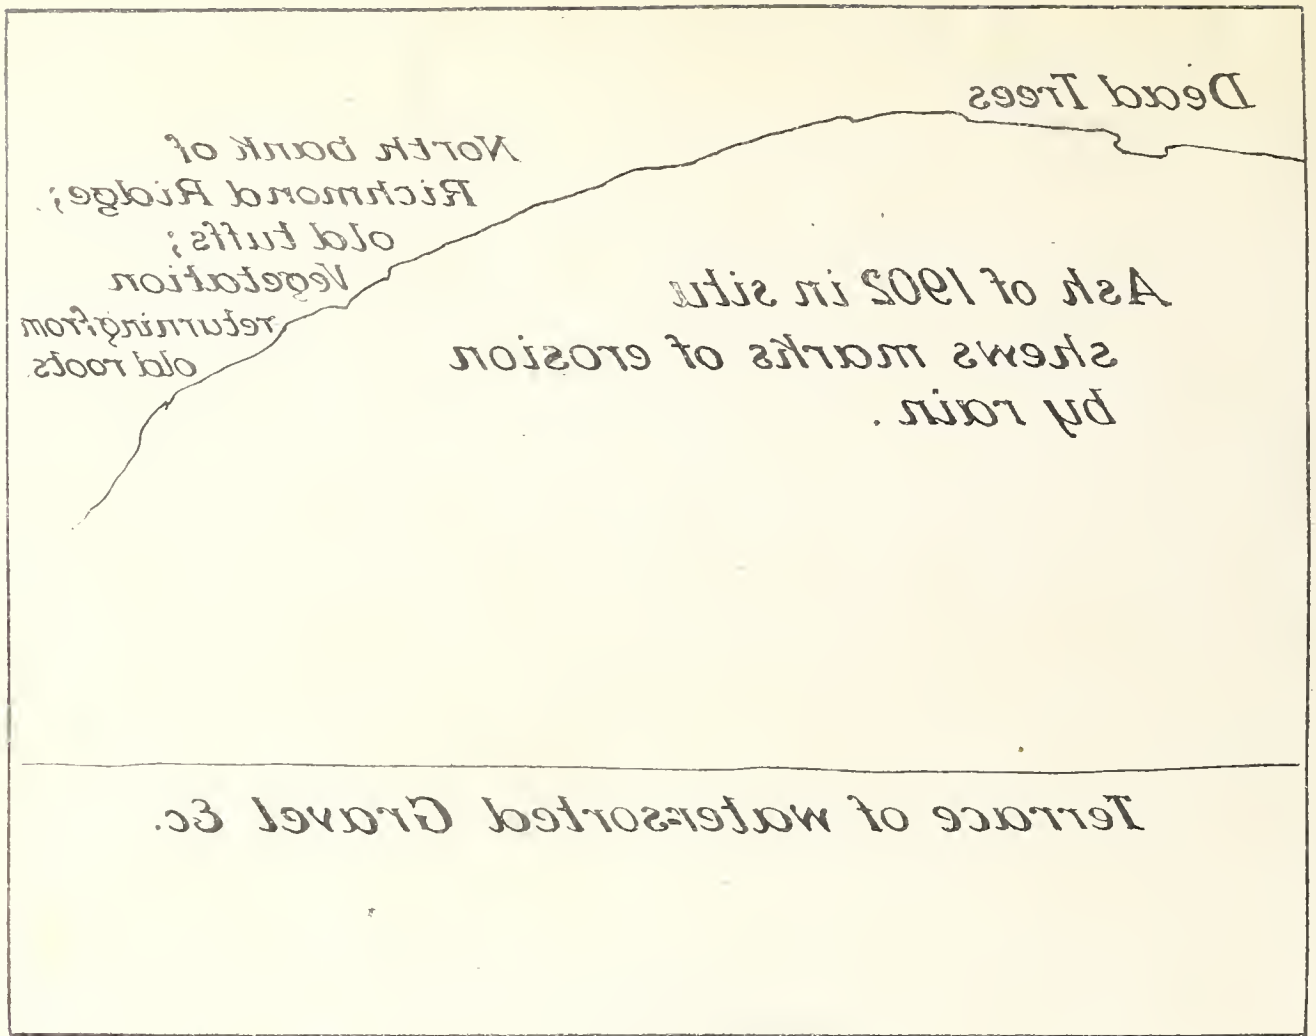 Dead Trees
North bank of
Richmond Ridge;
old tuffs;
Vegetation
returning from
old roots.
Ash of 1902 in situ
shews marks of erosion
by rain.
Terrace of water-sorted Gravel &c.